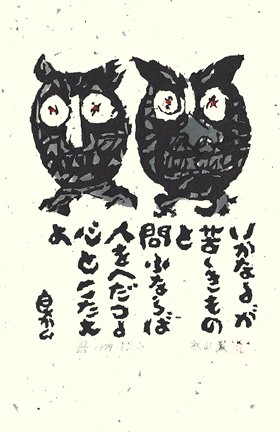 いかなるが
苦しきもの
と
問ふならば
人をへだつる
心とこたえ
よ
良かん
秋山巌
1979